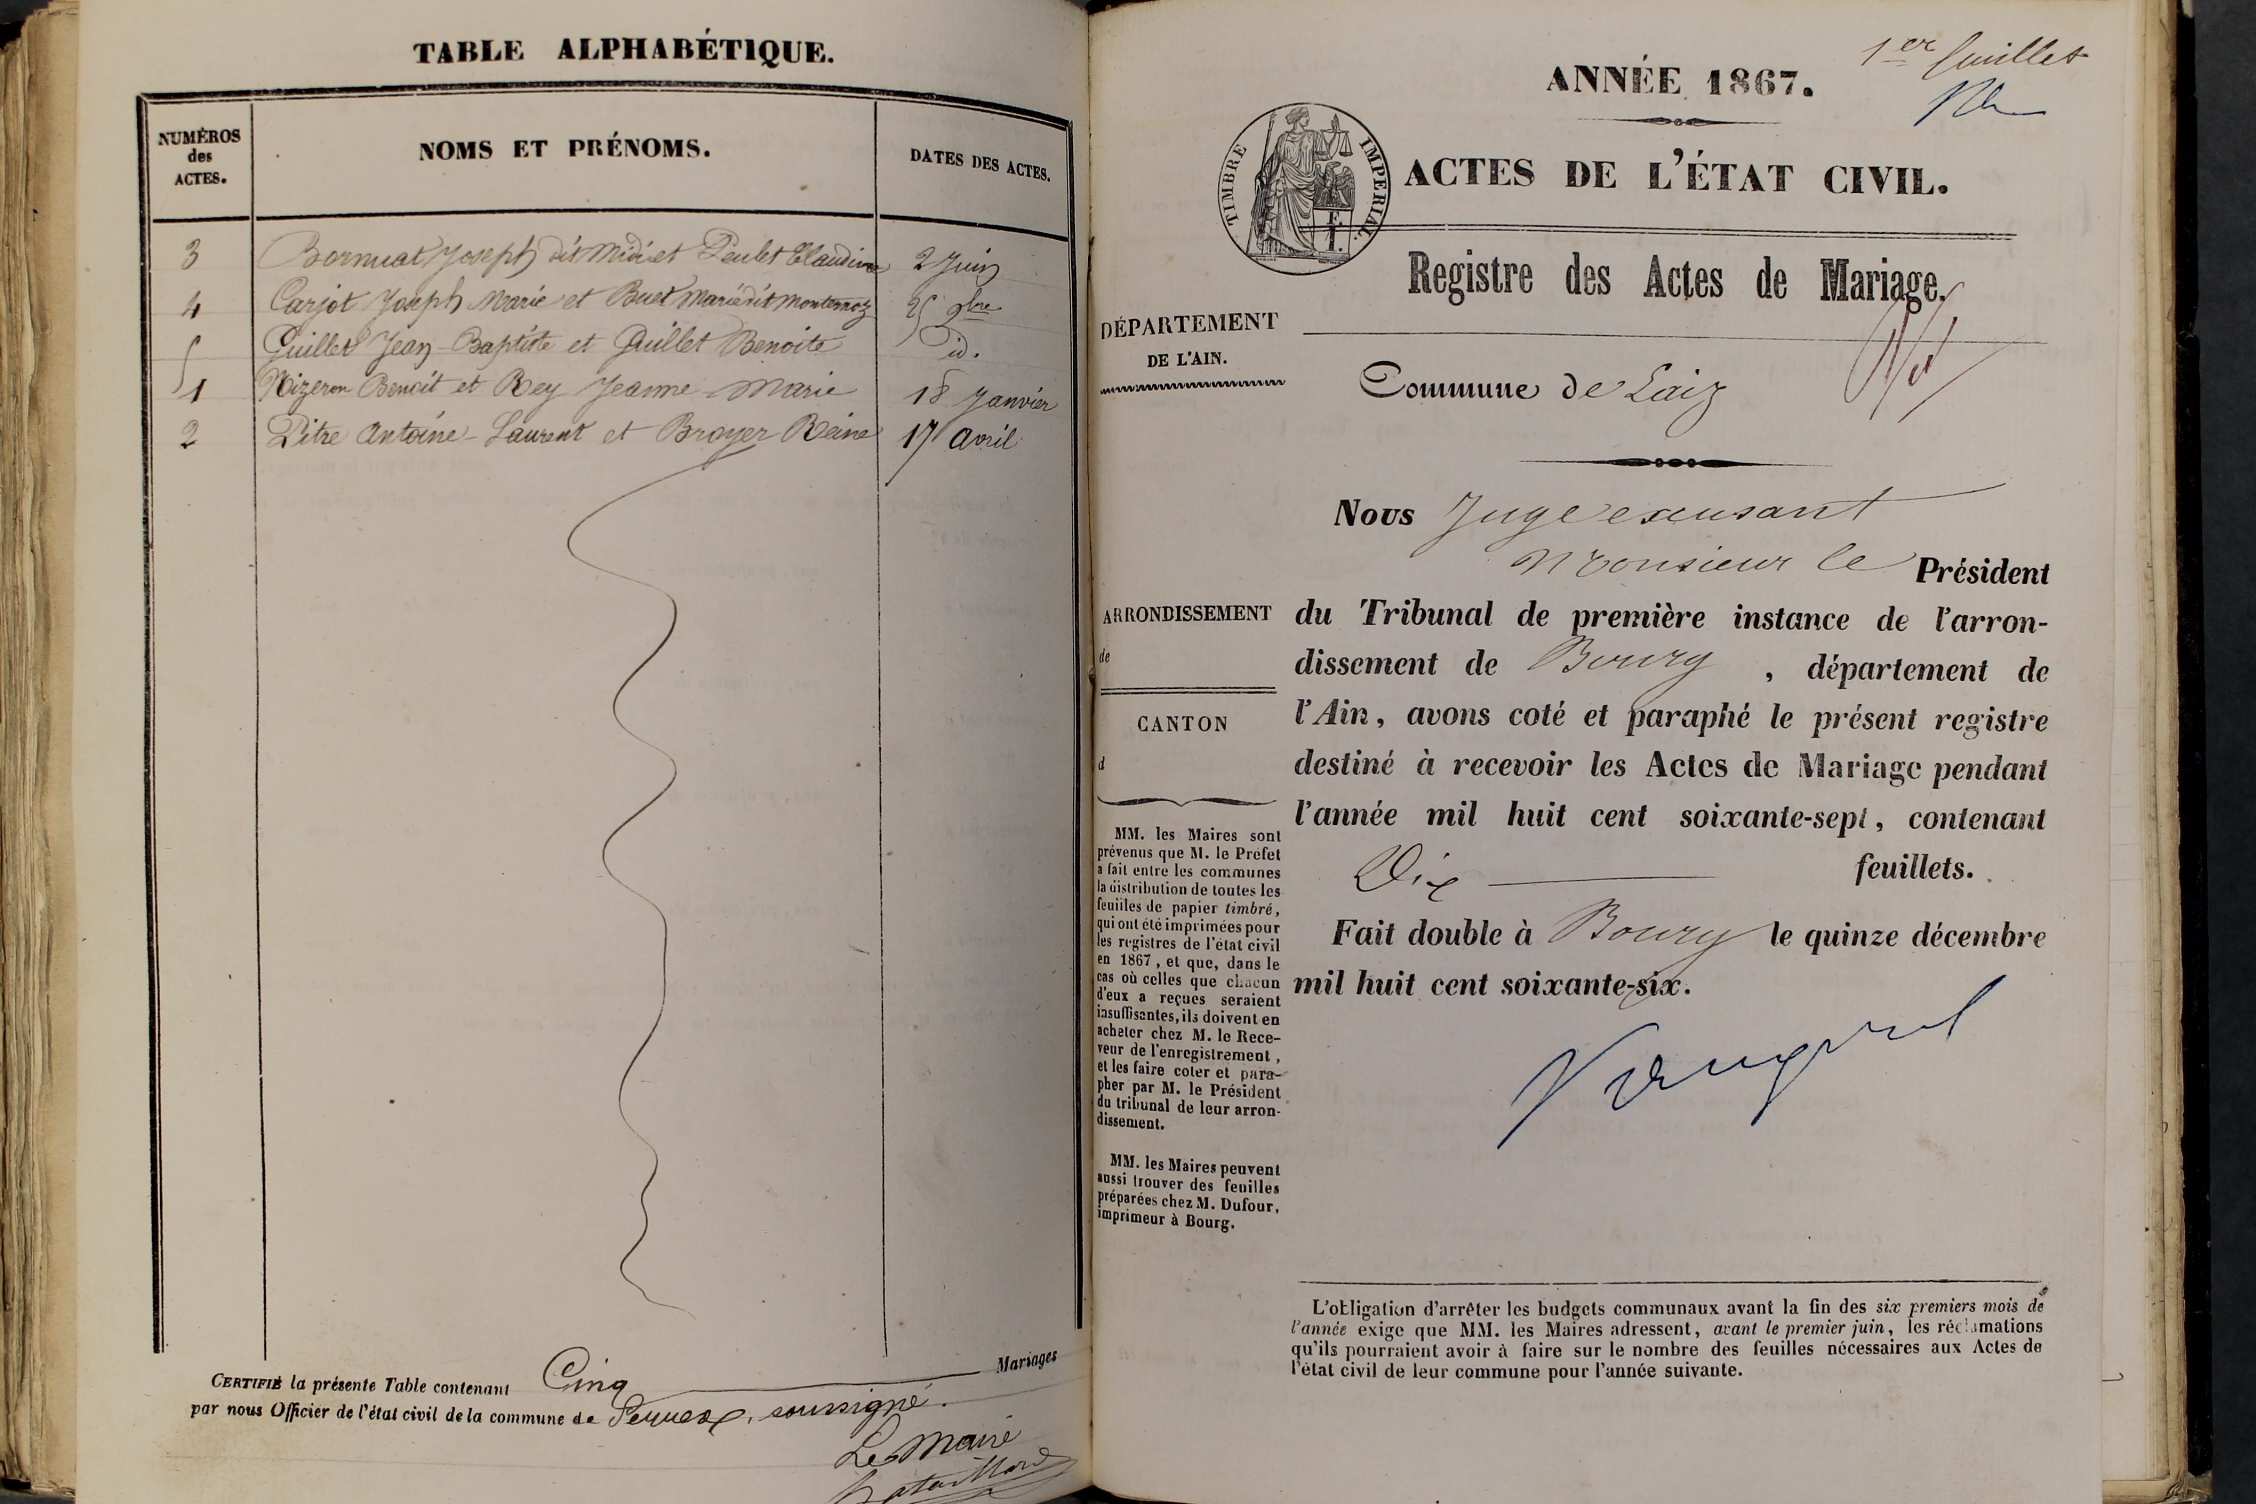 TABLE ALPHABÉTIQUE.
NUMÉROS
des
ACTES.
NOMS ET PRÉNOMS.
DATES DES ACTES.
3 Bornuat Joseph dit Midi et Peulet Claudine 2 Juin
4 Carjot Joseph Marie et Buet Marie dit Monternoz 25 9bre
5 Guillet Jean-Baptiste et Guillet Benoite id.
1 Mizeron Benoit et Rey Jeanne-Marie 18 Janvier
2 Pitre Antoine-Laurent et Broyer Reine 17 avril
CERTIFIÉ la présente Table contenant Cinq Mariages
par nous Officier de l'état civil de la commune de Perrex, soussigné.
Le Maire
1er feuillet
ANNÉE 1867.
TIMBRE IMPÉRIAL.
ACTES DE L'ÉTAT CIVIL.
Registre des Actes de Mariage.
DÉPARTEMENT
DE L'AIN.
Commune de Laiz
Nous Juge excusant
Monsieur le Président
ARRONDISSEMENT
de
CANTON
d
du Tribunal de première instance de l'arron-
dissement de Bourg, département de
l'Ain, avons coté et paraphé le présent registre
destiné à recevoir les Actes de Mariage pendant
l'année mil huit cent soixante-sept, contenant
Dix feuillets.
Fait double à Bourg le quinze décembre
mil huit cent soixante-six.
MM. les Maires sont
prévenus que M. le Préfet
a fait entre les communes
la distribution de toutes les
feuilles de papier timbré,
qui ont été imprimées pour
les registres de l'état civil
en 1867, et que, dans le
cas où celles que chacun
d'eux a reçues seraient
insuffisantes, ils doivent en
acheter chez M. le Rece-
veur de l'enregistrement,
et les faire coter et para-
pher par M. le Président
du tribunal de leur arron-
dissement.
MM. les Maires peuvent
aussi trouver des feuilles
préparées chez M. Dufour,
imprimeur à Bourg.
L'obligation d'arrêter les budgets communaux avant la fin des six premiers mois de
l'année exige que MM. les Maires adressent, avant le premier juin, les réclamations
qu'ils pourraient avoir à faire sur le nombre des feuilles nécessaires aux Actes de
l'état civil de leur commune pour l'année suivante.